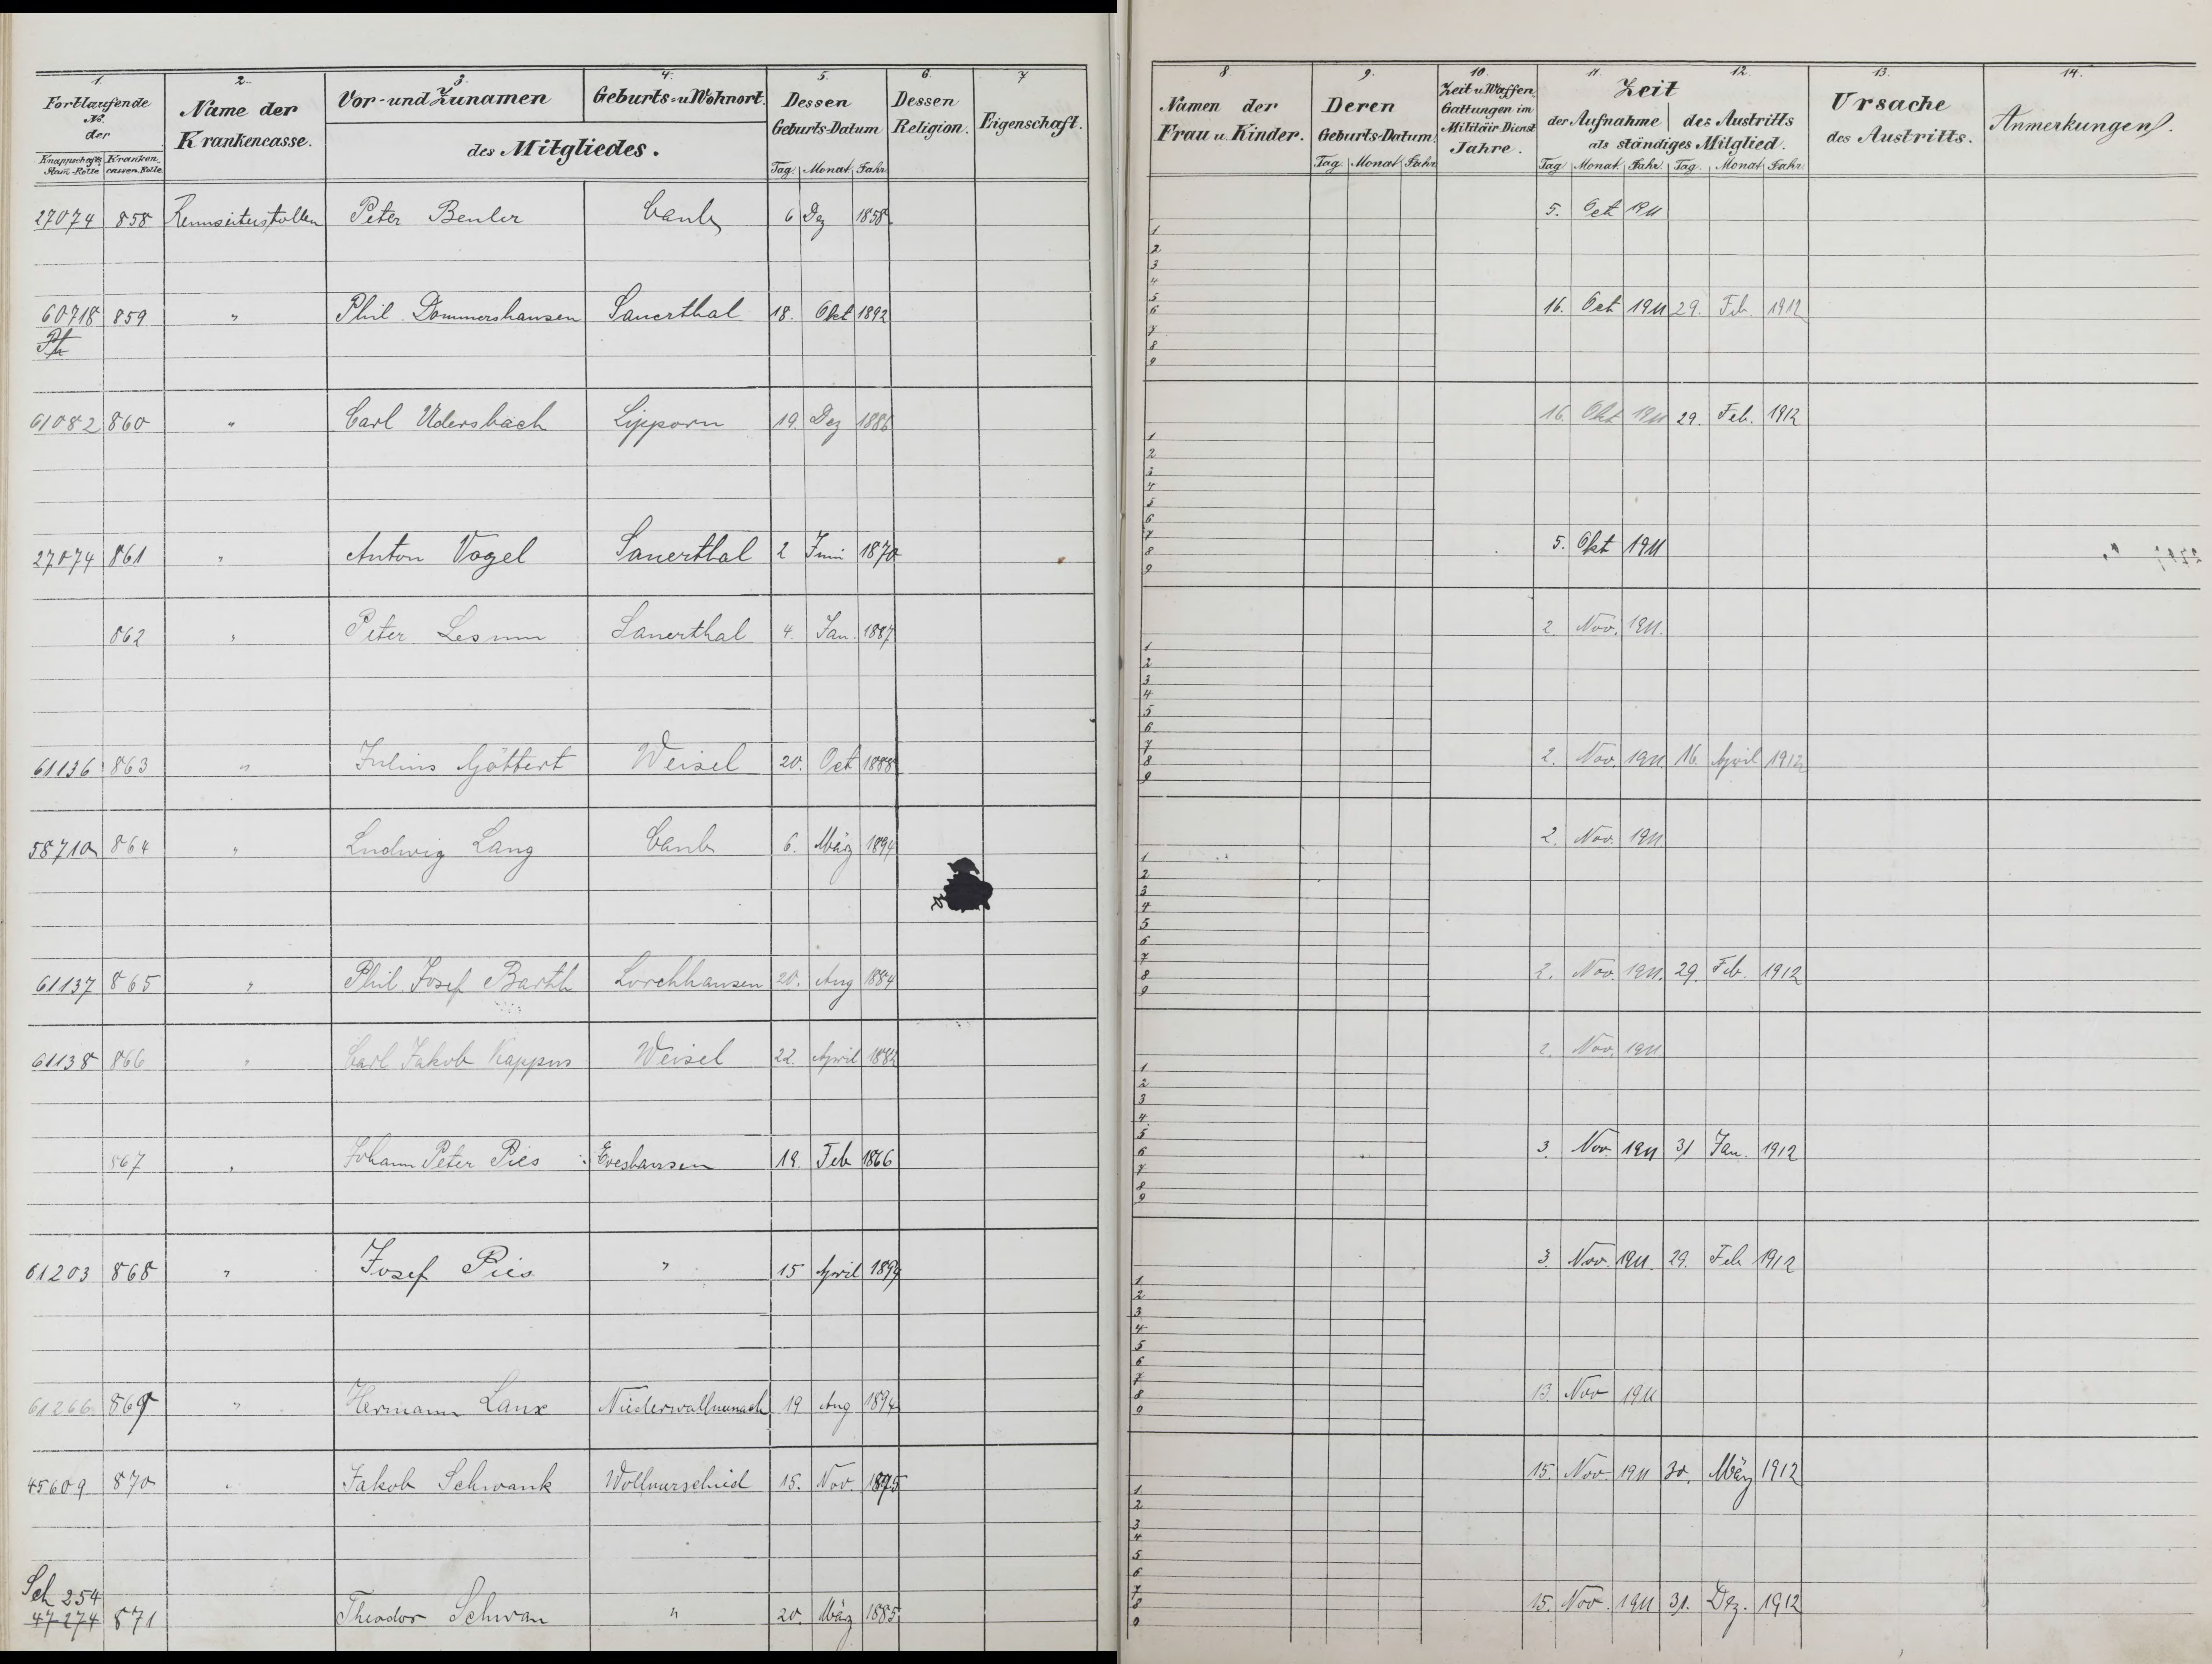 1. 2. 3. 4. 5. 6. 7
Fortlaufende No. der
Knappschafts Stam-Rolle Kranken cassen-Rolle
Name der Krankencasse.
Vor- und Zunamen
Geburts- u Wohnort.
des Mitgliedes.
Dessen Geburts-Datum
Tag. Monat Jahr
Dessen Religion.
Eigenschaft.
27074 858 Peter Benler Caub 6 Dez 1858
60718 859 " Phil. Dommershausen Sauerthal 18. Okt 1892
61082 860 " Carl Udersbach Lipporn 19. Dez 1886
27074 861 " Anton Vogel Sauerthal 2 Juni 1870
862 " Peter Sauerthal 4. Jan. 1887
61136 863 " Julius Göttert Weisel 20. Oct 1888
58710 864 " Ludwig Lang Caub 6. März 1894
61137 865 " Phil. Josef Barth Lorchhausen 20. Aug 1884
61138 866 " Carl Jakob Kappus Weisel 22. April 1882
867 " Johann Peter Pies Eveshausen 19. Feb 1866
61203 868 " Josef Pies " 15 April 1894
61266 869 " Hermann Lanx Niederwallmenach 19 Aug 1894
45609 870 " Jakob Schwank Wollmerscheid 15. Nov. 1875
Sch 254
47274 871 Theodor Schwan " 20. März 1885
8. 9. 10. 11. 12. 13. 14.
Namen der Frau u. Kinder.
Deren Geburts-Datum.
Tag Monat Jahr
Zeit u Waffen Gattungen im Militäir-Dienst Jahre.
Zeit
der Aufnahme des Austritts
als ständiges Mitglied.
Tag Monat. Jahr. Tag. Monat Jahr.
Ursache des Austritts.
Anmerkungen.
5. Oct 1911
1
2
3
4
5
6
7
8
9
16. Oct 1911 29. Feb. 1912
16. Okt 1911 29. Feb. 1912
1
2
3
4
5
6
7
8
9
5. Okt 1911
2. Nov. 1911.
1
2
3
4
5
6
7
8
9
2. Nov. 1911 16. April 1912
2. Nov. 1911
1
2
3
4
5
6
7
8
9
2. Nov. 1911. 29. Feb. 1912
2. Nov. 1911
1
2
3
4
5
6
7
8
9
3. Nov 1911 31 Jan. 1912
3. Nov. 1911. 29. Feb 1912
1
2
3
4
5
6
7
8
9
13 Nov 1911
15. Nov 1911 30. März 1912
1
2
3
4
5
6
7
8
9
15. Nov. 1911 31. Dez. 1912